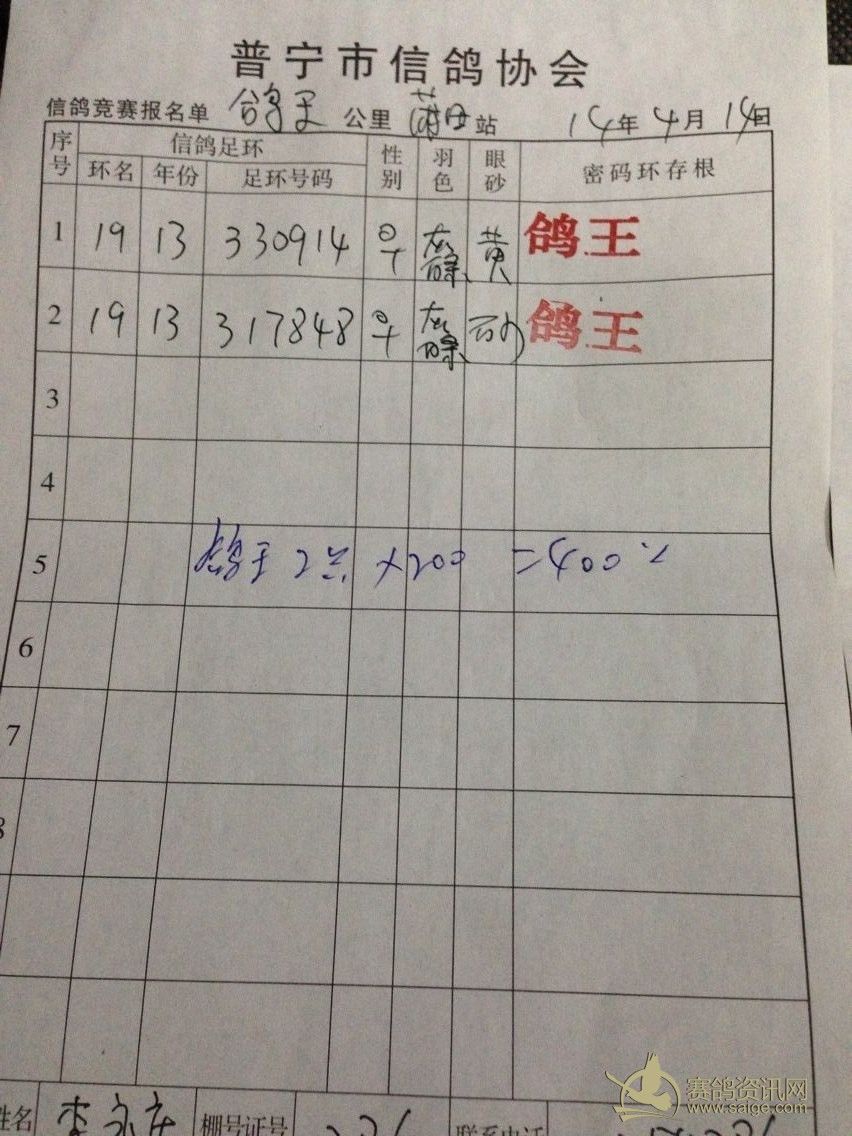 普宁市信鸽协会
信鸽竞赛报名单 鸽王 公里 莆田 站 14年4月14日
序号 信鸽足环 性别 羽色 眼砂 密码环存根
环名 年份 足环号码
1 19 13 330914 ♀ 灰 黄 鸽王
2 19 13 317848 ♀ 灰 砂 鸽王
3
4
5 鸽王 2 × 200 = 400
6
7
8
姓名 李 棚号证号 联系电话
赛鸽资讯网
www.saige.com